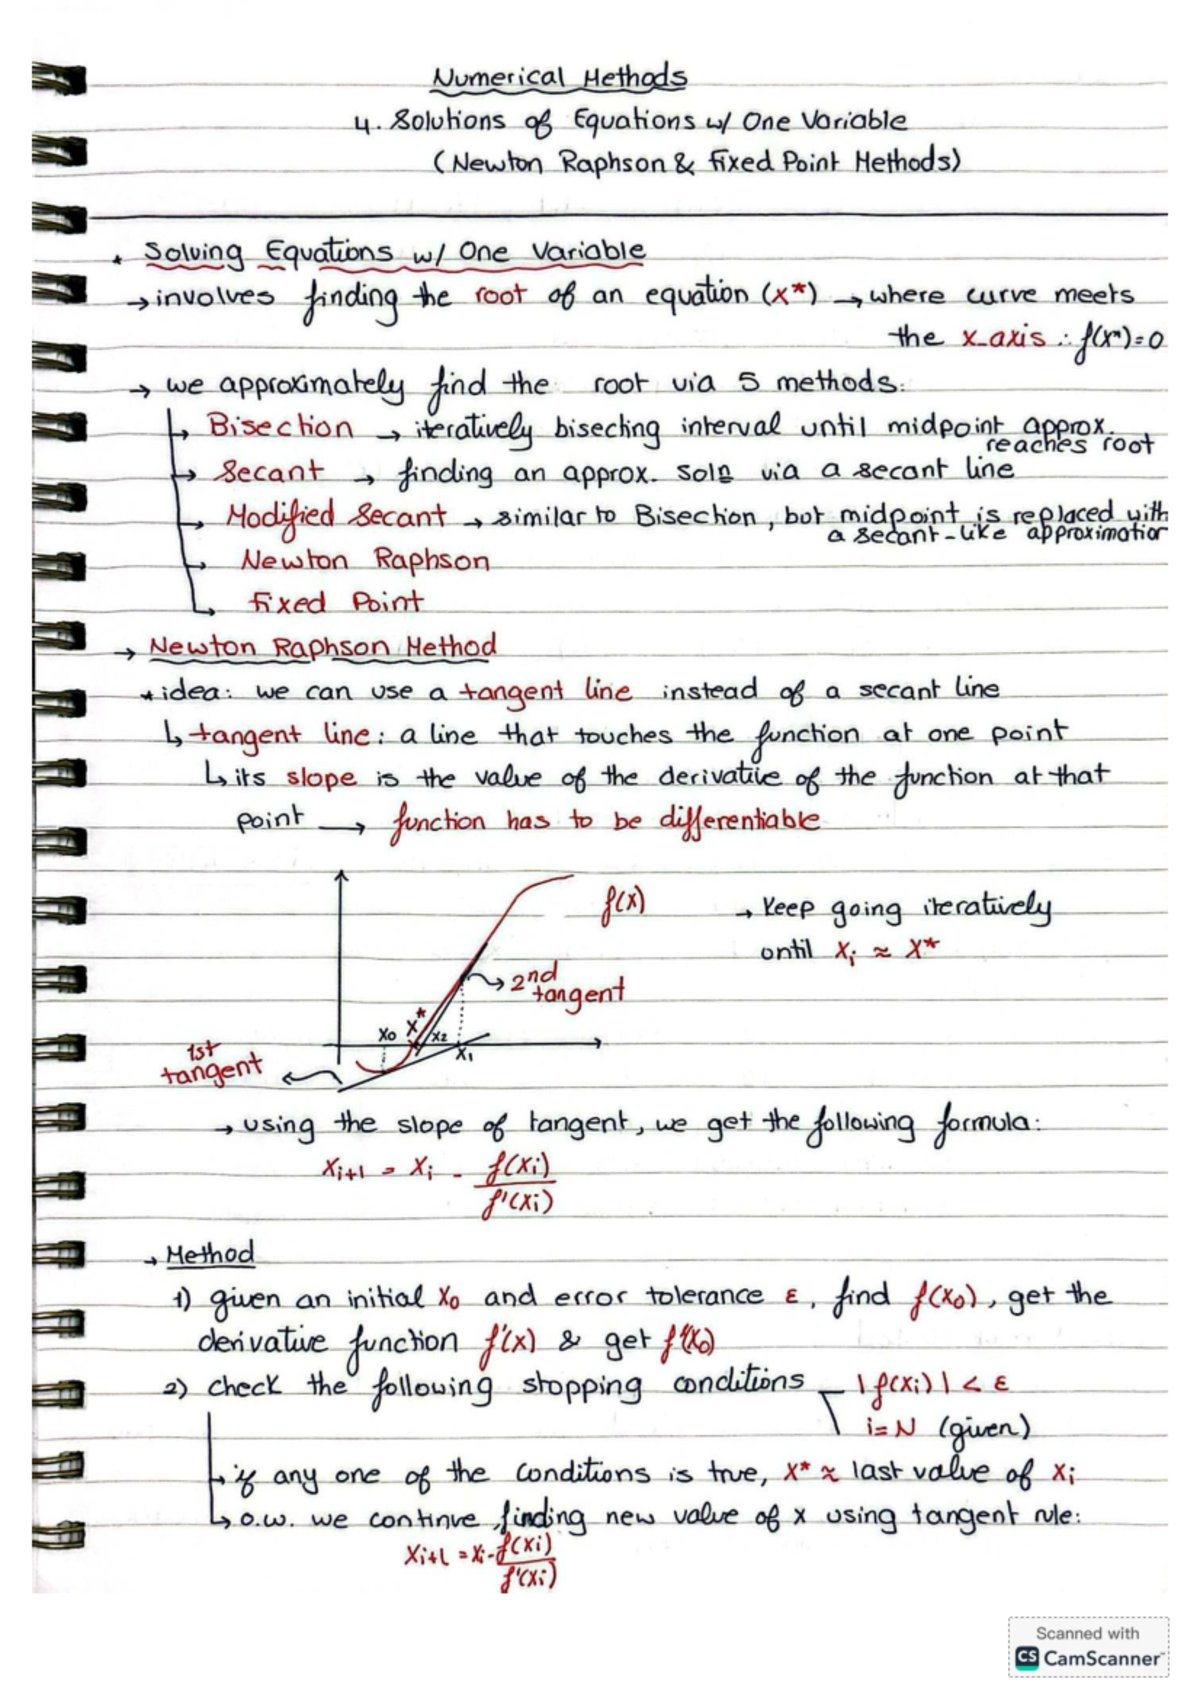 Numerical Methods
4. Solutions of Equations w/ One Variable
(Newton Raphson & Fixed Point Methods)
* Solving Equations w/ One Variable
→ involves finding the root of an equation (x*) → where curve meets
the x-axis ∴ f(x*)=0
→ we approximately find the root via 5 methods:
↳ Bisection → iteratively bisecting interval until midpoint approx.
reaches root
↳ Secant → finding an approx. soln via a secant line
↳ Modified Secant → similar to Bisection, but midpoint is replaced with
a secant-like approximation
↳ Newton Raphson
↳ Fixed Point
→ Newton Raphson Method
* idea: we can use a tangent line instead of a secant line
↳ tangent line: a line that touches the function at one point
↳ its slope is the value of the derivative of the function at that
point → function has to be differentiable
f(x)
→ Keep going iteratively
until xi ≈ x*
2nd
tangent
x0 x* x2
x1
1st
tangent
→ using the slope of tangent, we get the following formula:
xi+1 = xi - f(xi)
f'(xi)
→ Method
1) given an initial x0 and error tolerance ε, find f(x0), get the
derivative function f'(x) & get f'(x0)
2) check the following stopping conditions |f(xi)| < ε
i=N (given)
↳ if any one of the conditions is true, x* ≈ last value of xi
↳ o.w. we continue finding new value of x using tangent rule:
xi+1 = xi - f(xi)
f'(xi)
Scanned with
CS CamScanner